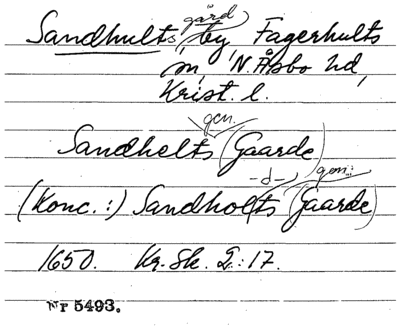 gård
Sandhults by Fagerhults
sn, N. Åsbo hd,
Krist. l.
gen.
Sandhelts (Gaarde)
-d- gen.
(Konc.:) Sandholts (Gaarde)
1650. Kr. Sk. 2:17.
Nr 5493.